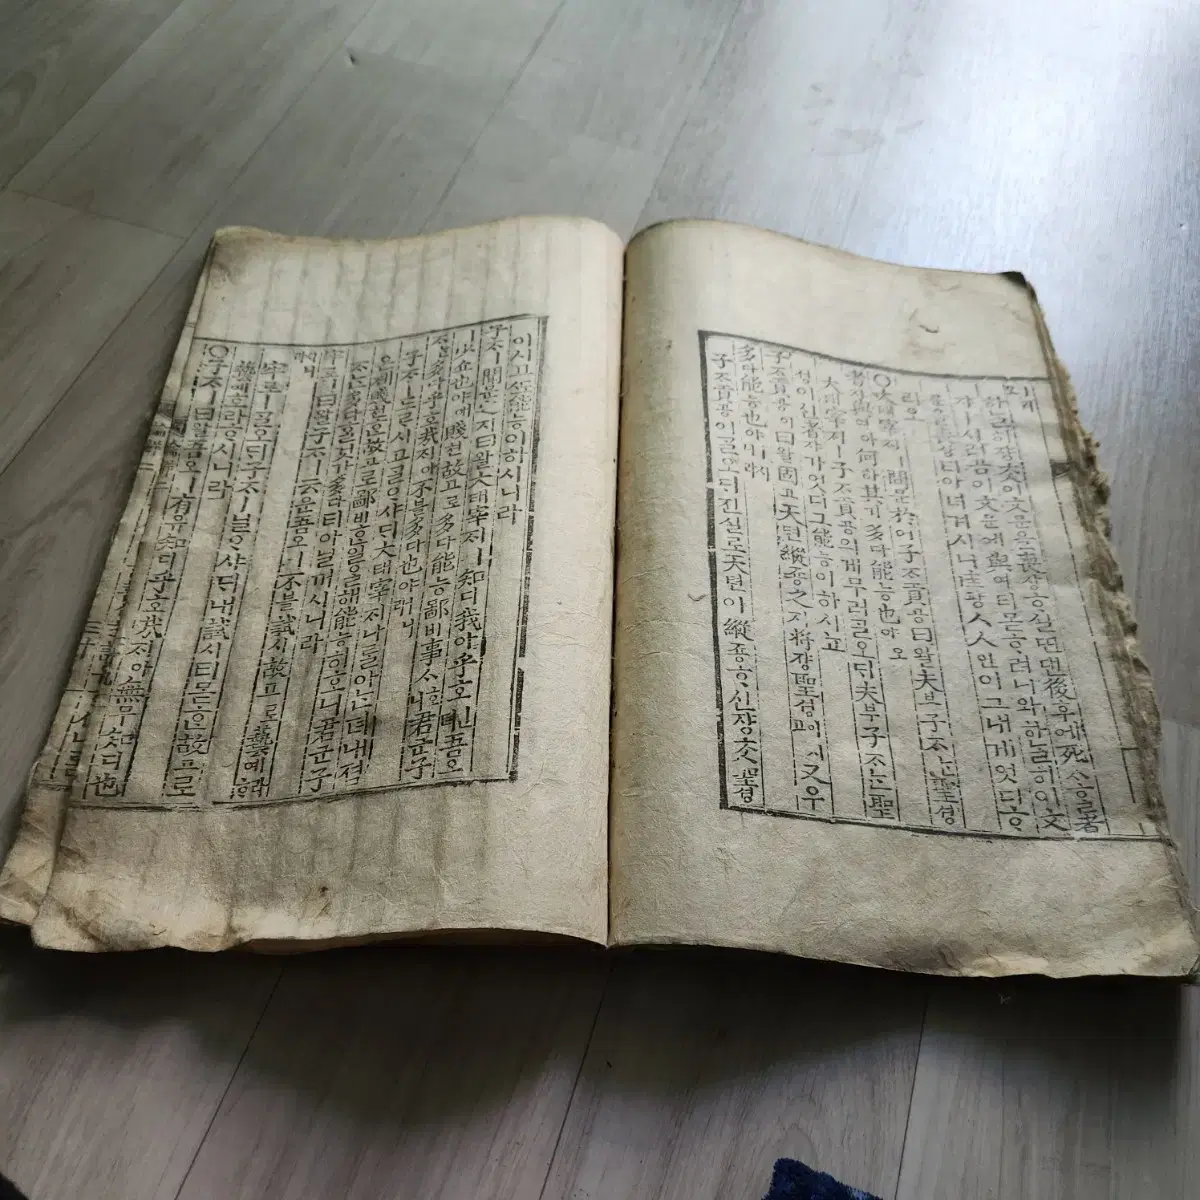 하ᄂᆞᆯ히 쟝ᄎᆞᆺ 이 文문을 喪상ᄒᆞ실띤댄 後후에 死ᄉᆞᄒᆞᆯ 者
쟈ㅣ 시러곰 이 文문에 與여티 몯ᄒᆞ려니와 하ᄂᆞᆯ히 이 文
문을 喪상티 아녀 겨시니 匡광人인이 그 내게 엇디ᄒᆞ
리오
○大태宰ᄌᆡㅣ 問문於어子ᄌᆞ貢공曰왈夫부子ᄌᆞᄂᆞᆫ 聖셩
者쟈與여아 何하其기多다能능也야오
大태宰ᄌᆡㅣ 子ᄌᆞ貢공의게 무러 ᄀᆞᆯ오ᄃᆡ 夫부子ᄌᆞᄂᆞᆫ 聖
셩이신 者쟈가 엇디 그 能능이 하시뇨
子ᄌᆞ貢공이 曰왈固고天텬縱죵之지將쟝聖셩이시고 又우
多다能능也야ㅣ시니라
子ᄌᆞ貢공이 ᄀᆞᆯ오ᄃᆡ 진실로 天텬이 縱죵ᄒᆞ신 쟝ᄎᆞᆺ 聖셩
이시고 ᄯᅩ 能능이 하시니라
子ᄌᆞㅣ 聞문之지曰왈大태宰ᄌᆡㅣ 知디我아乎호ㅣᆫ뎌 吾오
ㅣ 少쇼也야애 賤쳔故고로 多다能능鄙비事ᄉᆞ호니 君군子
ᄌᆞᄂᆞᆫ 多다乎호哉ᄌᆡ아 不블多다也야ㅣ니라
子ᄌᆞㅣ 드르시고 ᄀᆞᆯᄋᆞ샤ᄃᆡ 大태宰ᄌᆡ 나를 아ᄂᆞᆫ뎌 내 졈
은 제 賤쳔ᄒᆞᆫ 故고로 鄙비ᄒᆞᆫ 일을 해 能능호니 君군子
ᄌᆞᄂᆞᆫ 多다ᄒᆞᆯ 것가 多다티 아닐 꺼시니라
牢로ㅣ 曰왈子ᄌᆞㅣ 云운吾오ㅣ 不블試시故고로 藝예라ᄒᆞ
니라
牢로ㅣ ᄀᆞᆯ오ᄃᆡ 子ᄌᆞㅣ 닐ᄋᆞ샤ᄃᆡ 내 試시티 몯ᄒᆞᆫ 故고로
藝예호라 ᄒᆞ시니라
○子ᄌᆞㅣ 曰왈吾오ㅣ 有유知디乎호哉ᄌᆡ아 無무知디也